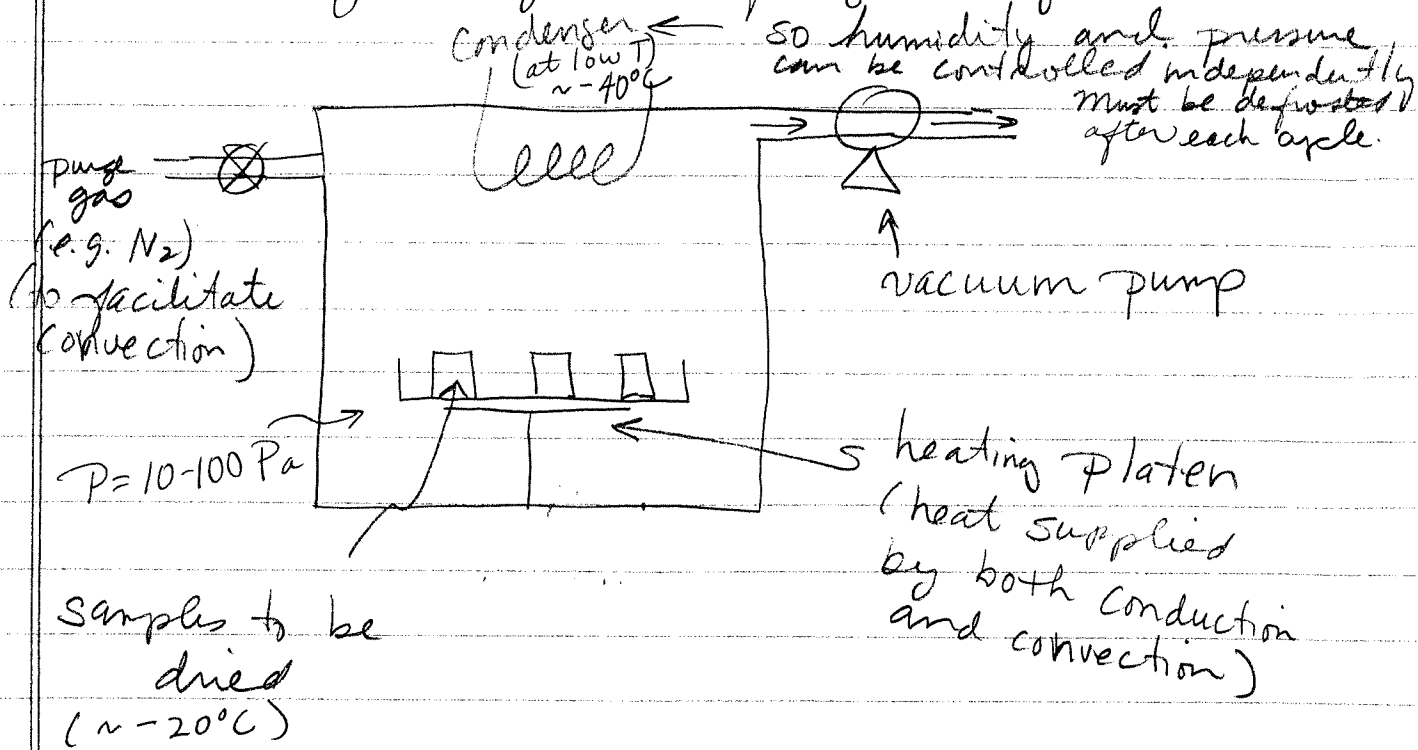 Condenser
(at low T)
~-40°C
so humidity and pressure
can be controlled independently
must be defrosted
after each cycle.
purge
gas
(e.g. N2)
(to facilitate
convection)
vacuum pump
P=10-100 Pa
heating platen
(heat supplied
by both conduction
and convection)
samples to be
dried
(~-20°C)